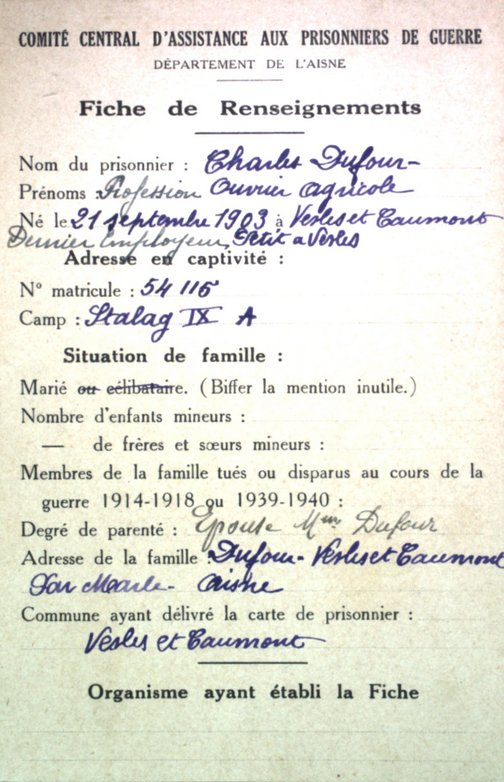 COMITÉ CENTRAL D'ASSISTANCE AUX PRISONNIERS DE GUERRE
DÉPARTEMENT DE L'AISNE
Fiche de Renseignements
Nom du prisonnier : Charles Dufour-
Prénoms : Profession Ouvrier agricole
Né le 21 septembre 1903 à Vesles et Caumont
Dernier Employeur, Petit a Vesles
Adresse en captivité :
N° matricule : 54 115
Camp : Stalag IX A
Situation de famille :
Marié ou célibataire. (Biffer la mention inutile.)
Nombre d'enfants mineurs :
— de frères et sœurs mineurs :
Membres de la famille tués ou disparus au cours de la
guerre 1914-1918 ou 1939-1940 :
Degré de parenté : Epouse Mme Dufour
Adresse de la famille : Dufour - Vesles et Caumont
Par Marle - Aisne
Commune ayant délivré la carte de prisonnier :
Vesles et Caumont
Organisme ayant établi la Fiche